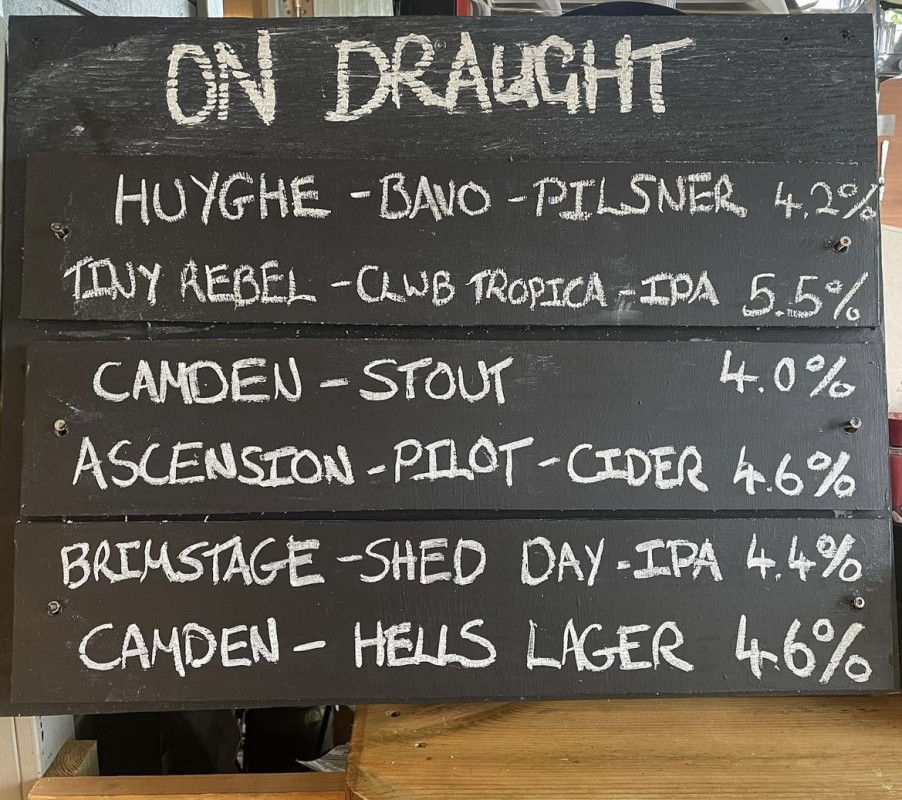 ON DRAUGHT
HUYGHE - BAVO - PILSNER 4.2%
TINY REBEL - CLWB TROPICA - IPA 5.5%
CAMDEN - STOUT 4.0%
ASCENSION - PILOT - CIDER 4.6%
BRIMSTAGE - SHED DAY - IPA 4.4%
CAMDEN - HELLS LAGER 4.6%